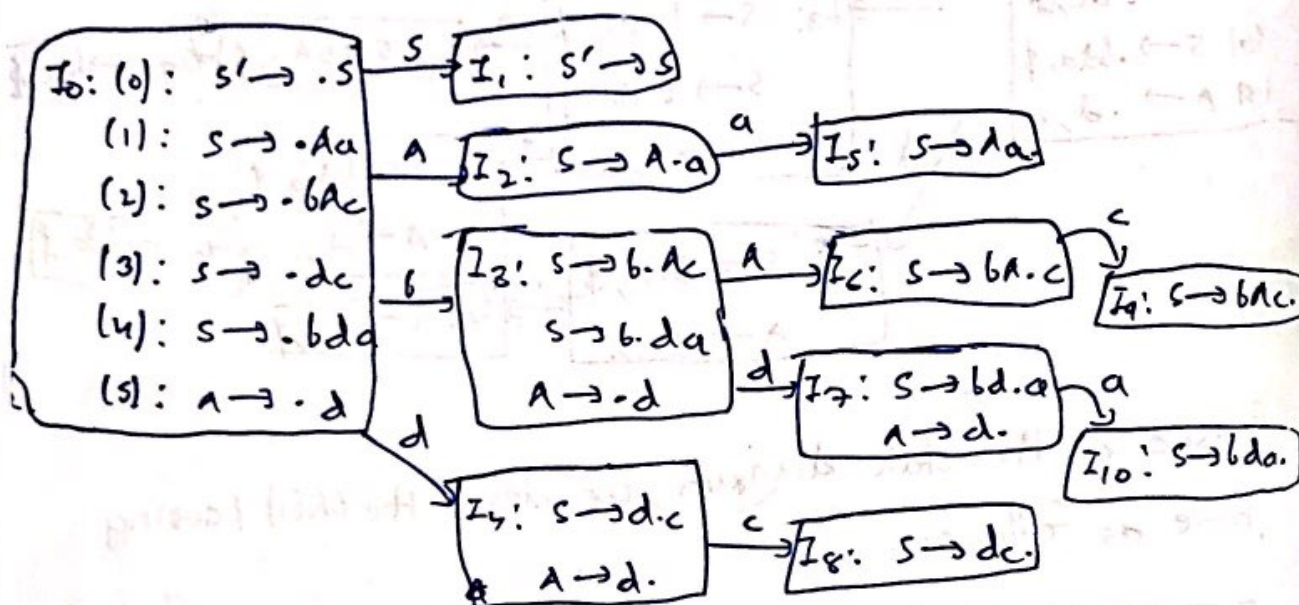 I₀: (0): S' → .S
(1): S → .Aa
(2): S → .bAc
(3): S → .dc
(4): S → .bda
(5): A → .d
S
I₁: S' → S
A
I₂: S → A.a
a
I₅: S → Aa.
b
I₃: S → b.Ac
S → b.da
A → .d
A
I₆: S → bA.c
c
I₉: S → bAc.
d
I₇: S → bd.a
A → d.
a
I₁₀: S → bda.
d
I₄: S → d.c
A → d.
c
I₈: S → dc.